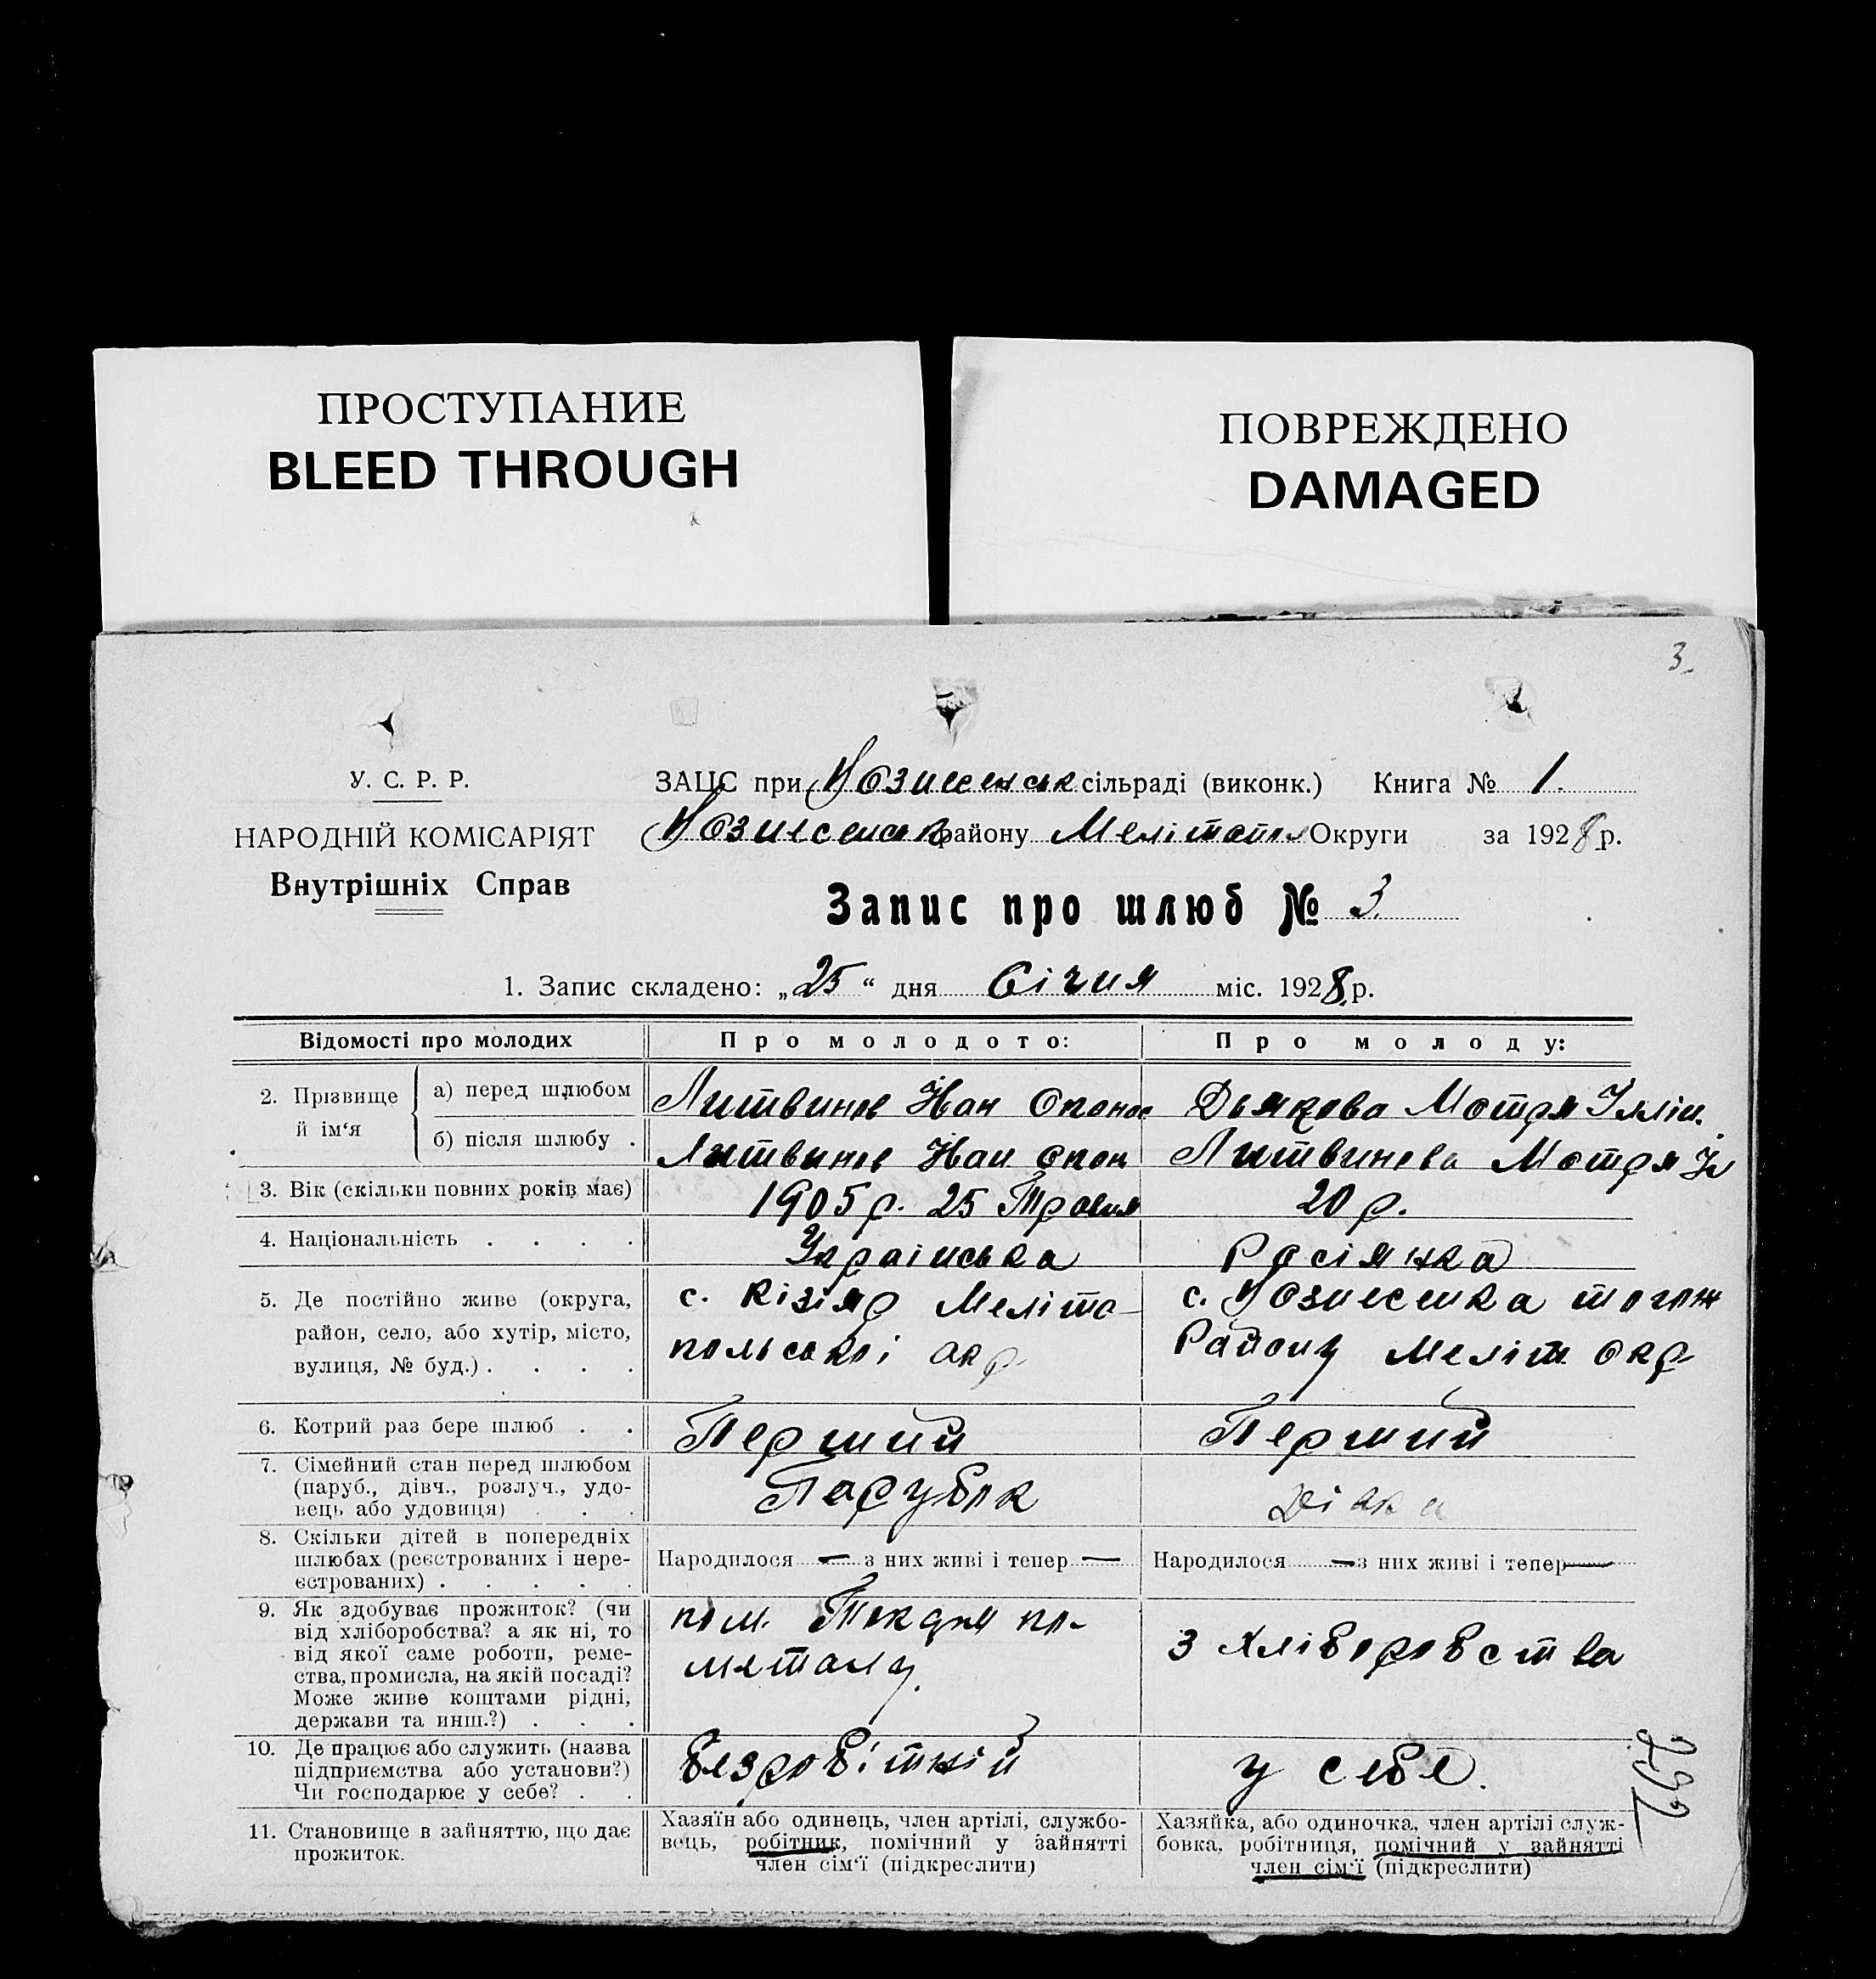 ПРОСТУПАНИЕ
BLEED THROUGH
ПОВРЕЖДЕНО
DAMAGED
3.
У. С. Р. Р.
НАРОДНІЙ КОМІСАРІЯТ
Внутрішніх Справ
ЗАЦС при Вознесенськ сільраді (виконк.) Книга № 1.
Вознесенськ району Мелітопол Округи за 1928 р.
Запис про шлюб № 3.
1. Запис складено: „25“ дня Січня міс. 1928 р.
Відомості про молодих
Про молодого:
Про молоду:
2. Прізвище й ім‘я
а) перед шлюбом
Литвинов Іван Опанас
Дьякова Мотря Іллін.
б) після шлюбу .
Литвинов Іван Опан
Литвинова Мотря Іл
3. Вік (скільки повних років має)
1905 р. 25 Травня
20 р.
4. Національність . . . .
Українська
Росіянка
5. Де постійно живе (округа,
район, село, або хутір, місто,
вулиця, № буд.) . . . .
с. Кізіяр Меліто-
польської окр
с. Вознесенка тогож
Району Меліт. окр
6. Котрий раз бере шлюб . .
Перший
Перший
7. Сімейний стан перед шлюбом
(паруб., дівч., розлуч., удо-
вець або удовиця) . . .
Парубок
Дівка
8. Скільки дітей в попередніх
шлюбах (реєстрованих і нере-
єстрованих) . . . . .
Народилося — з них живі і тепер —
Народилося — з них живі і тепер —
9. Як здобуває прожиток? (чи
від хліборобства? а як ні, то
від якої саме роботи, реме-
ства, промисла, на якій посаді?
Може живе коштами рідні,
держави та инш.?) . . .
пом. Токаря по-
металу.
З хліборобства
10. Де працює або служить (назва
підприємства або установи?)
Чи господарює у себе? . .
безробітній
у себе.
11. Становище в зайняттю, що дає
прожиток.
Хазяїн або одинець, член артілі, службо-
вець, робітник, помічний у зайнятті
член сім‘ї (підкреслити)
Хазяйка, або одиночка, член артілі служ-
бовка, робітниця, помічний у зайнятті
член сім‘ї (підкреслити)